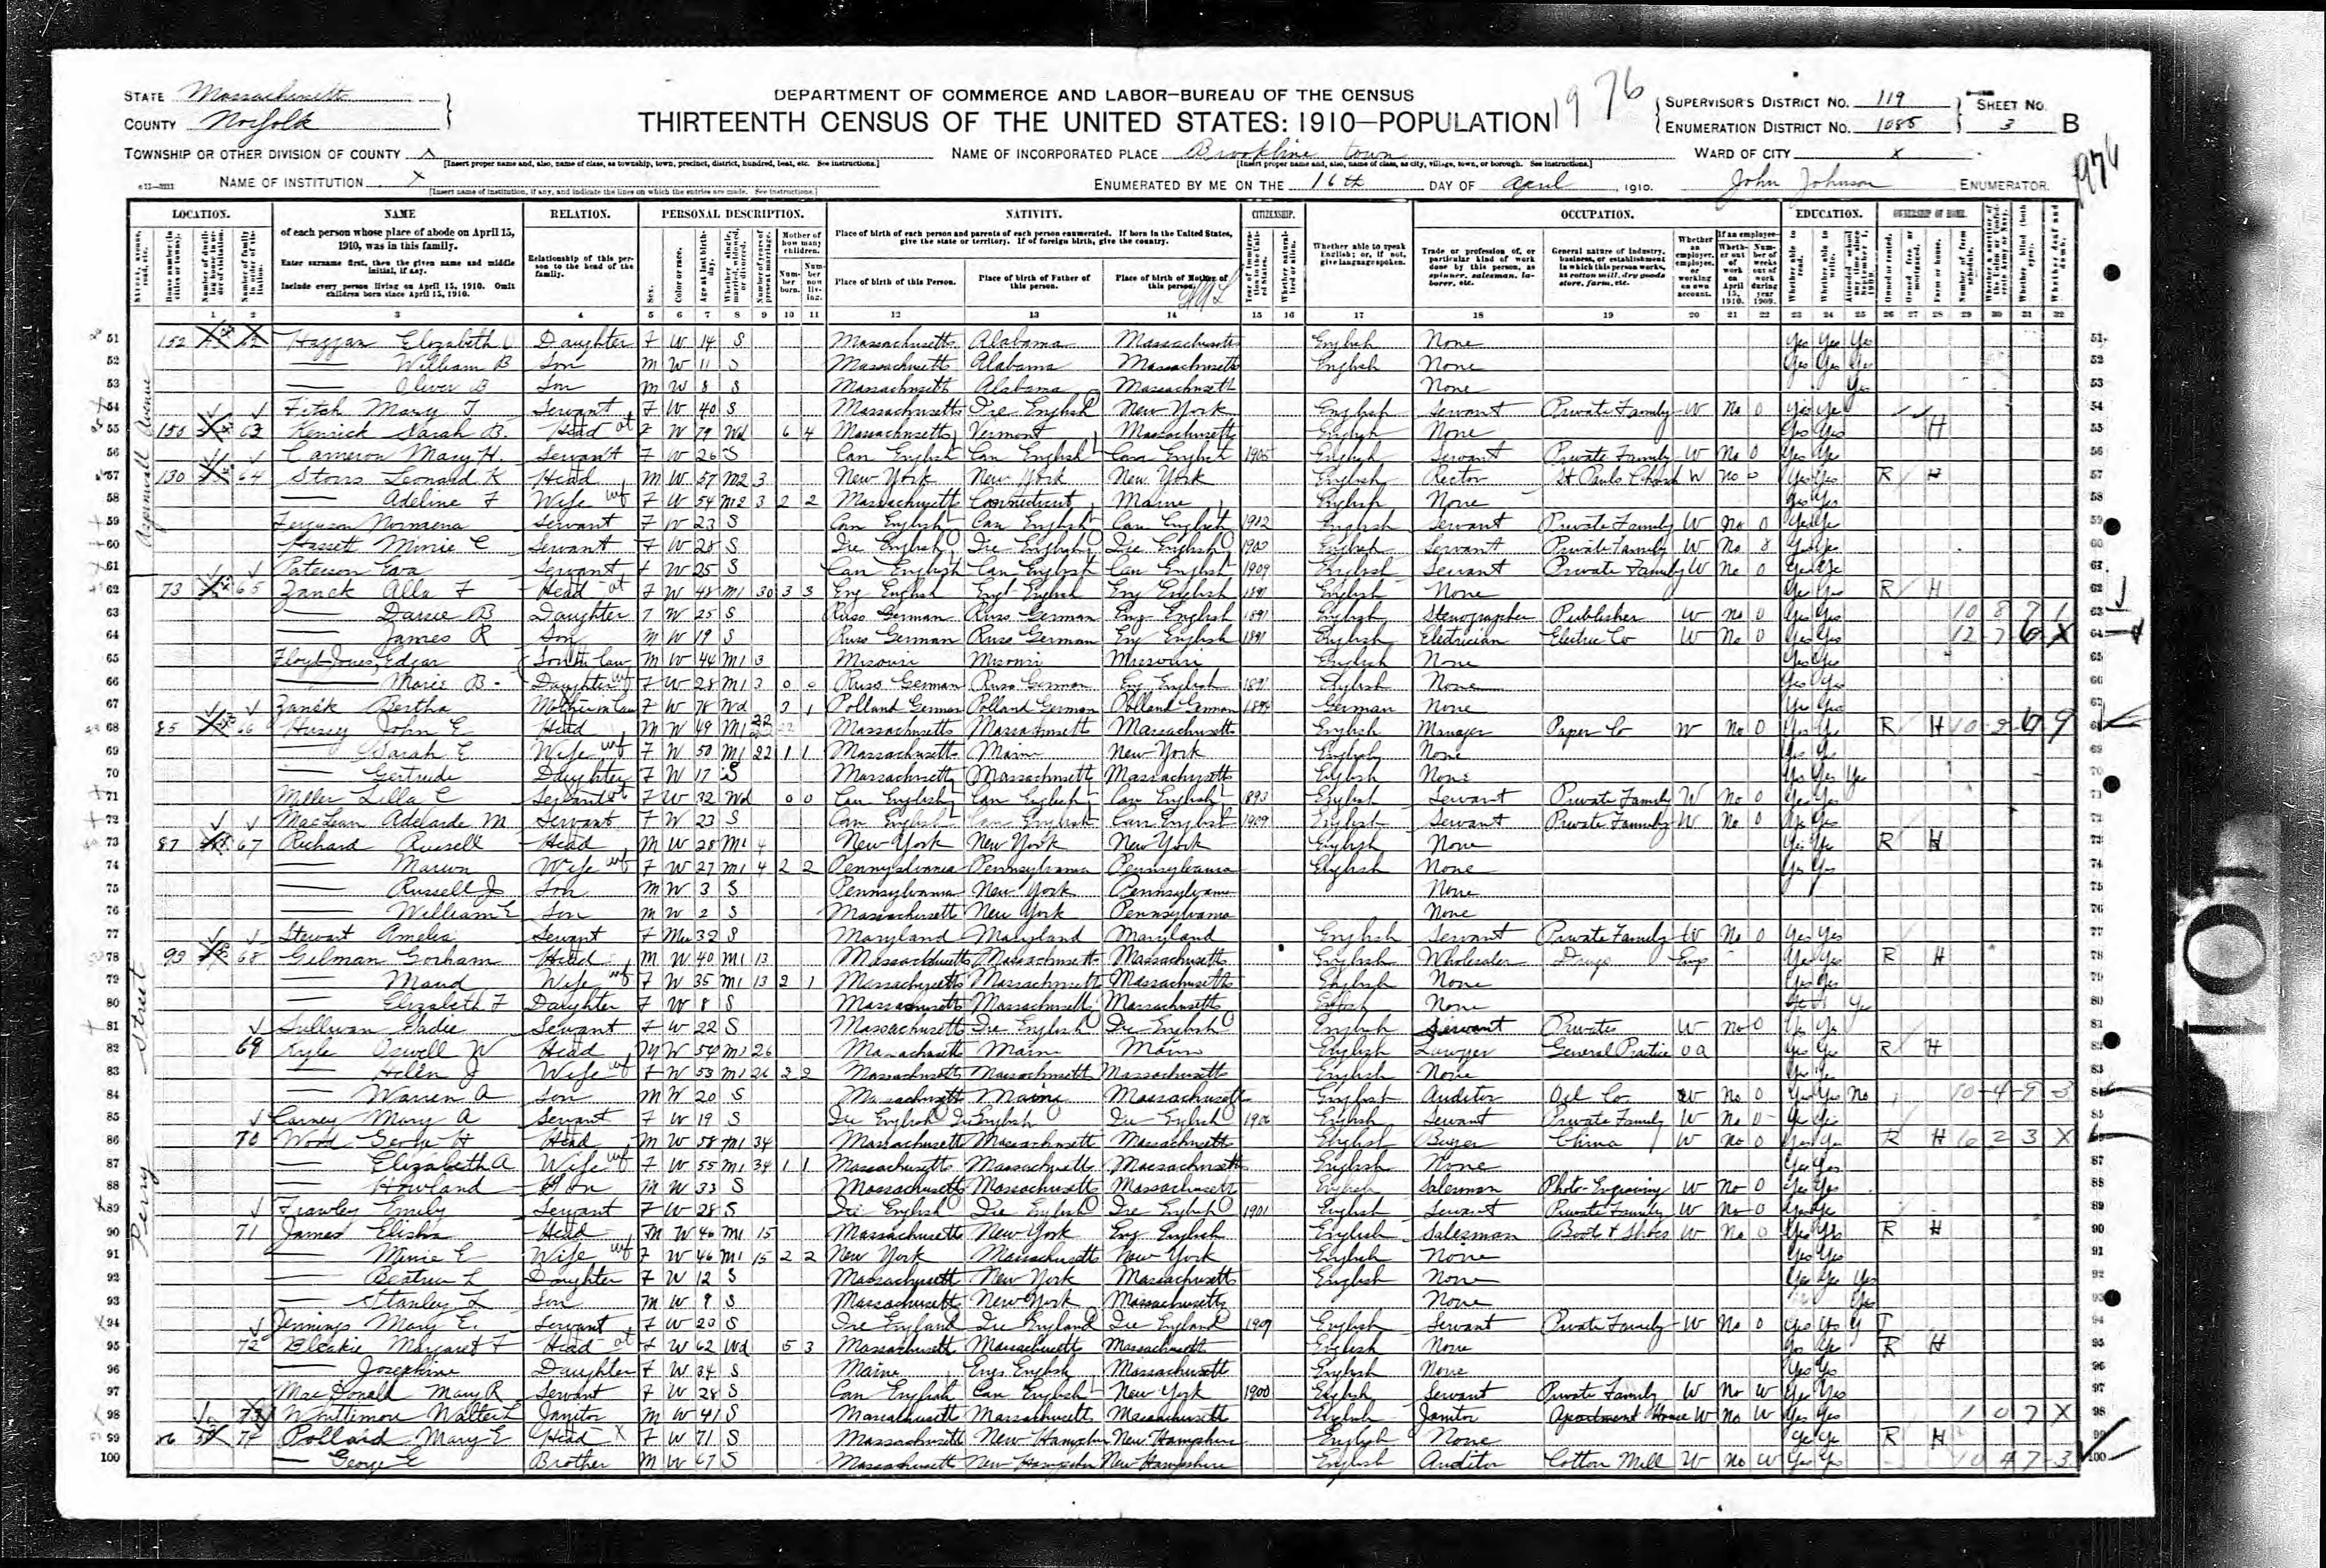 1976
STATE Massachusetts
COUNTY Norfolk
TOWNSHIP OR OTHER DIVISION OF COUNTY X
[Insert proper name and, also, name of class, as township, town, precinct, district, hundred, beat, etc. See instructions.]
NAME OF INSTITUTION X
[Insert name of institution, if any, and indicate the lines on which the entries are made. See instructions.]
DEPARTMENT OF COMMERCE AND LABOR—BUREAU OF THE CENSUS
THIRTEENTH CENSUS OF THE UNITED STATES: 1910—POPULATION
NAME OF INCORPORATED PLACE Brookline town
[Insert proper name and, also, name of class, as city, village, town, or borough. See instructions.]
ENUMERATED BY ME ON THE 16th DAY OF April, 1910.
SUPERVISOR'S DISTRICT NO. 119
ENUMERATION DISTRICT NO. 1085
SHEET NO. 3 B
WARD OF CITY X
John Johnson ENUMERATOR.
1976
LOCATION. NAME RELATION. PERSONAL DESCRIPTION. NATIVITY. CITIZENSHIP. OCCUPATION. EDUCATION. OWNERSHIP OF HOME.
of each person whose place of abode on April 15, 1910, was in this family.
Enter surname first, then the given name and middle initial, if any.
Include every person living on April 15, 1910. Omit children born since April 15, 1910.
Relationship of this person to the head of the family.
Mother of how many children.
Place of birth of each person and parents of each person enumerated. If born in the United States, give the state or territory. If of foreign birth, give the country.
Place of birth of this Person. Place of birth of Father of this person. Place of birth of Mother of this person.
Whether able to speak English; or, if not, give language spoken.
Trade or profession of, or particular kind of work done by this person, as spinner, salesman, laborer, etc.
General nature of industry, business, or establishment in which this person works, as cotton mill, dry goods store, farm, etc.
1 2 3 4 5 6 7 8 9 10 11 12 13 14 15 16 17 18 19 20 21 22 23 24 25 26 27 28 29 30 31 32
Aspinwall Avenue
51 152 Elizabeth Daughter F W 14 S Massachusetts Alabama Massachusetts English None Yes Yes Yes
52 William B Son M W 11 S Massachusetts Alabama Massachusetts English None Yes Yes Yes
53 Oliver B Son M W 8 S Massachusetts Alabama Massachusetts None Yes
54 Fitch Mary T Servant F W 40 S Massachusetts Ire English New York English Servant Private Family W No 0 Yes Yes
55 150 63 Kenrick Sarah B. Head F W 79 Wd 6 4 Massachusetts Vermont Massachusetts English None Yes Yes H
56 Cameron Mary H. Servant F W 26 S Can English Can English Can English 1905 English Servant Private Family W No 0 Yes Yes
57 130 64 Storrs Leonard K Head M W 57 M2 3 New York New York New York English Rector St Pauls Church W No 0 Yes Yes R H
58 Adeline F Wife F W 54 M2 3 2 2 Massachusetts Connecticut Maine English None Yes Yes
59 Ferguson Servant F W 23 S Can English Can English Can English 1902 English Servant Private Family W No 0 Yes Yes
60 Hassett Minie C Servant F W 28 S Ire English Ire English Ire English English Servant Private Family W No 8 Yes Yes
61 Paterson Servant F W 25 S Can English Can English Can English 1909 English Servant Private Family W No 0 Yes Yes
62 73 65 Zanck Alla F Head F W 48 M1 30 3 3 Eng English Eng English Eng English 1891 English None Yes Yes R H
63 B Daughter F W 25 S Russ German Russ German Eng English 1891 English Stenographer Publisher W No 0 Yes Yes
64 James R Son M W 19 S Russ German Russ German Eng English 1891 English Electrician Electric Co W No 0 Yes Yes
65 Floyd-Jones, Edgar Son in law M W 44 M1 3 Missouri Missouri Missouri English None Yes Yes
66 Marie B Daughter F W 28 M1 3 0 0 Russ German Russ German Eng English 1891 English None Yes Yes
67 Zanck Bertha Mother in law F W 78 Wd 1 Polland German Polland German Polland German German None Yes Yes
68 85 66 John E Head M W 49 M1 22 Massachusetts Massachusetts Massachusetts English Manager Paper Co W No 0 R H
69 Sarah E Wife F W 50 M1 22 1 1 Massachusetts Maine New York English None Yes Yes
70 Gertrude Daughter F W 17 S Massachusetts Massachusetts Massachusetts English None Yes Yes Yes
71 Miller Lilla C Servant F W 32 Wd 0 0 Can English Can English Can English 1893 English Servant Private Family W No 0 Yes Yes
72 MacLean Adelaide M Servant F W 23 S Can English Can English Can English 1909 English Servant Private Family W No 0 Yes Yes
Perry Street
73 87 67 Richard Russell Head M W 28 M1 4 New York New York New York English None Yes Yes R H
74 Marion Wife F W 27 M1 4 2 2 Pennsylvania Pennsylvania Pennsylvania English None Yes Yes
75 Russell J Son M W 3 S Pennsylvania New York Pennsylvania None
76 William E Son M W 2 S Massachusetts New York Pennsylvania None
77 Stewart Amelia Servant F Mu 32 S Maryland Maryland Maryland English Servant Private Family W No 0 Yes Yes
78 93 68 Gilman Gorham Head M W 40 M1 13 Massachusetts Massachusetts Massachusetts English Wholesaler Drugs Emp Yes Yes R H
79 Maud Wife F W 35 M1 13 2 1 Massachusetts Massachusetts Massachusetts English None Yes Yes
80 Elizabeth F Daughter F W 8 S Massachusetts Massachusetts Massachusetts English None Yes
81 Sullivan Sadie Servant F W 22 S Massachusetts Ire English Ire English English Servant Private W No 0 Yes Yes
82 69 Kyle Orwell W Head M W 54 M1 26 Massachusetts Maine Maine English Lawyer General Practice OA Yes Yes R H
83 Helen J Wife F W 53 M1 26 2 2 Massachusetts Massachusetts Massachusetts English None Yes Yes
84 Warren A Son M W 20 S Massachusetts Maine Massachusetts English Auditor Oil Co W No 0 Yes Yes No 10-4-9-3
85 Carney Mary A Servant F W 19 S Ire English Ire English Ire English 1906 English Servant Private Family W No 0 Yes Yes
86 70 Wood George H Head M W 58 M1 34 Massachusetts Massachusetts Massachusetts English Buyer China W No 0 Yes Yes R H 6 2 3 X
87 Elizabeth A Wife F W 55 M1 34 1 1 Massachusetts Massachusetts Massachusetts English None Yes Yes
88 Howland Son M W 33 S Massachusetts Massachusetts Massachusetts English Salesman Photo-Engraving W No 0 Yes Yes
89 Frawley Emily Servant F W 28 S Ire English Ire English Ire English 1901 English Servant Private Family W No 0 Yes Yes
90 71 James Elisha Head M W 46 M1 15 Massachusetts New York Eng English English Salesman Boot & Shoes W No 0 Yes Yes R H
91 Minie E Wife F W 46 M1 15 2 2 New York Massachusetts New York English None Yes Yes
92 Beatrice L Daughter F W 12 S Massachusetts New York Massachusetts English None Yes Yes Yes
93 Stanley L Son M W 9 S Massachusetts New York Massachusetts None Yes
94 Jennings Mary E. Servant F W 20 S Ire England Ire England Ire England 1909 English Servant Private Family W No 0 Yes Yes
95 72 Bleakie Margaret F Head F W 62 Wd 5 3 Massachusetts Massachusetts Massachusetts English None Yes Yes R H
96 Josephine Daughter F W 34 S Maine Eng English Massachusetts English None Yes Yes
97 MacDonald Mary R Servant F W 28 S Can English Can English New York 1900 English Servant Private Family W No W Yes Yes
98 73 Whittimore Walter L Janitor M W 41 S Massachusetts Massachusetts Massachusetts English Janitor Apartment House W No W Yes Yes 1 0 7 X
99 74 Pollard Mary E Head X F W 71 S Massachusetts New Hampshire New Hampshire English None Yes Yes R H
100 George E Brother M W 67 S Massachusetts New Hampshire New Hampshire English Auditor Cotton Mill W No W Yes Yes 10 4 7-3